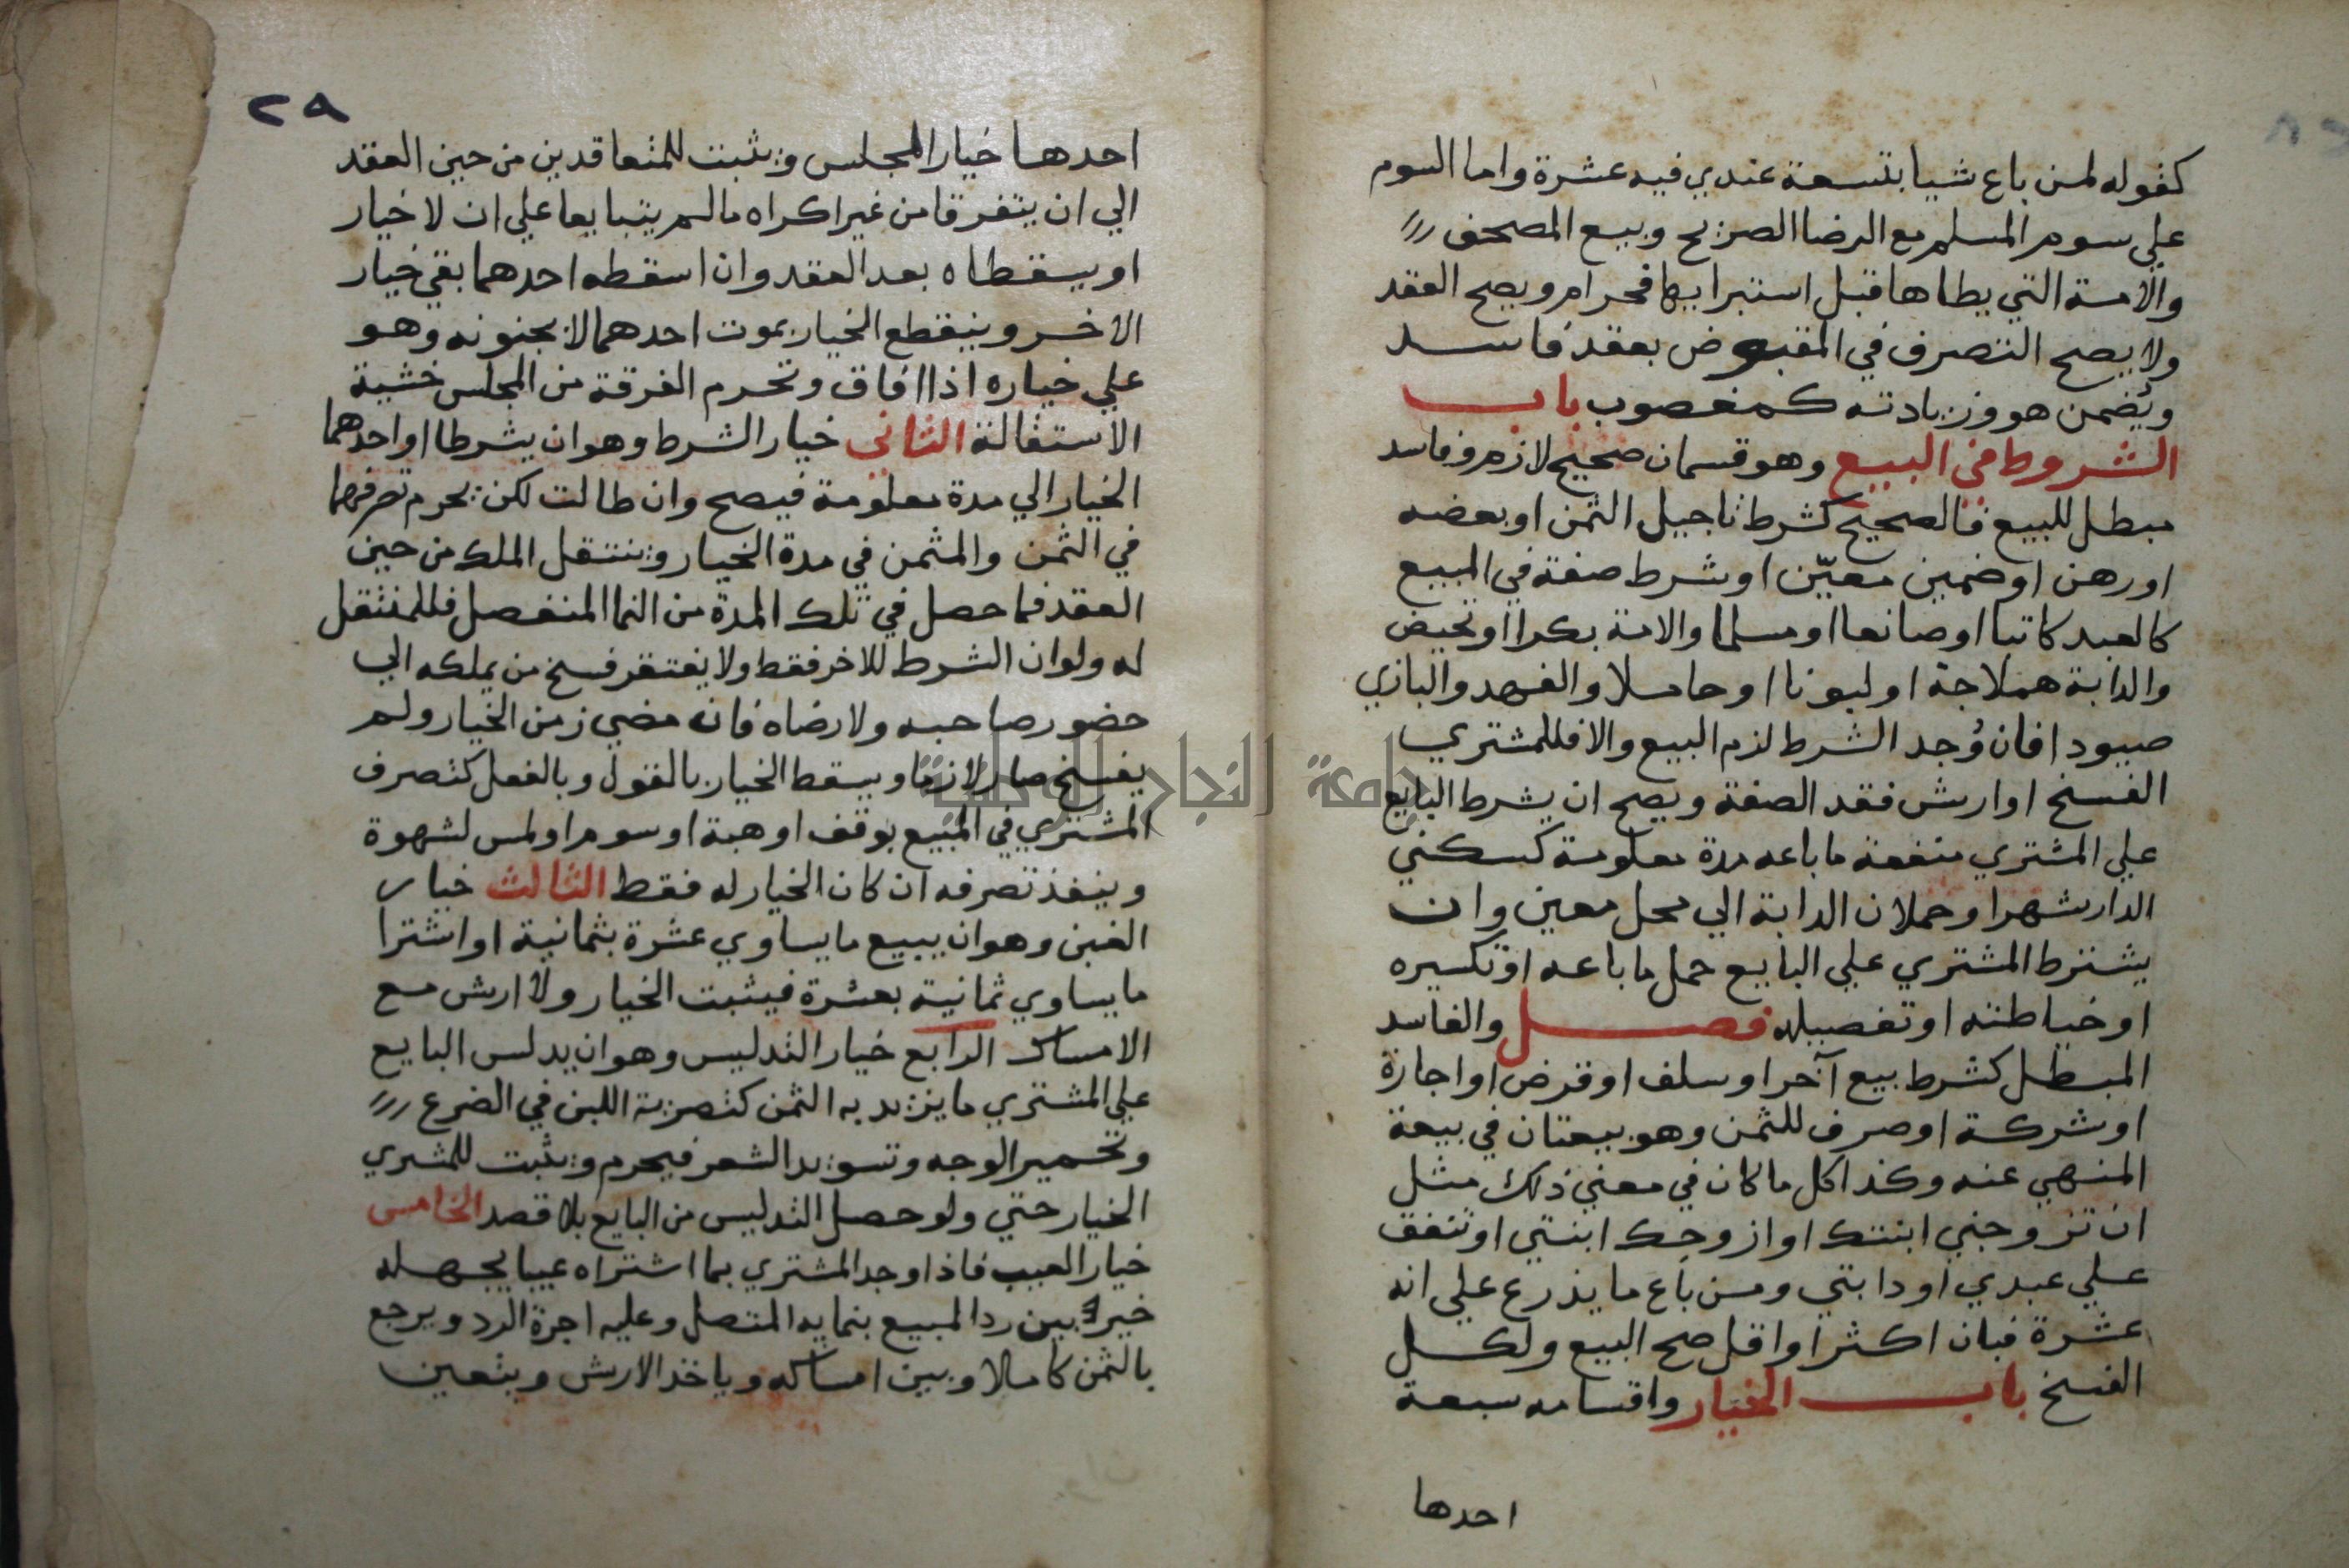 كقوله لمن باع شيا بتسعة عندي فيه عشرة واما السوم
علي سوم المسلم مع الرضا الصريح وبيع المصحف
والامة التي يطاها قبل استبرايها فحرام ويصح العقد
ولا يصح التصرف في المقبوض بعقد فاسد
ويُضمن هو وزيادته كمغصوب باب
الشروط في البيع وهو قسمان صحيح لازم وفاسد
مبطل للبيع فالصحيح كشرط تاجيل الثمن او بعضه
او رهن او ضمين معيّن او شرط صفة في المبيع
كالعبد كاتبا او صانعا او مسلما والامة بكرا او تحيض
والدابة هملاجة او لبونا او حاملا والفهد والبازي
صيودا فان وُجد الشرط لزم البيع والا فللمشتري
الفسخ او ارش فقد الصفة ويصح ان يشرط البايع
علي المشتري منفعة ما باعه مدة معلومة كسكني
الدار شهرا وحملان الدابة الي محل معين وان
يشترط المشتري علي البايع حمل ما باعه او تكسيره
او خياطته او تفصيله فصل والفاسد
المبطل كشرط بيع آخر او سلف او قرض او اجارة
او شركة او صرف للثمن وهو بيعتان في بيعة
المنهي عنه وكذا كل ما كان في معني ذلك مثل
ان تزوجني ابنتك او ازوجك ابنتي او تنفق
علي عبدي او دابتي ومن باع ما يذرع علي انه
عشرة فبان اكثر او اقل صح البيع ولكل
الفسخ باب الخيار واقسامه سبعة
احدها
٢٩
احدها خيار المجلس ويثبت للمتعاقدين من حين العقد
الي ان يتفرقا من غير اكراه ما لم يتبايعا علي ان لا خيار
او يسقطاه بعد العقد وان اسقطه احدهما بقي خيار
الاخر وينقطع الخيار بموت احدهما لا بجنونه وهو
علي خياره اذا افاق وتحرم الفرقة من المجلس خشية
الاستقالة الثاني خيار الشرط وهو ان يشرطا او احدهما
الخيار الي مدة معلومة فيصح وان طالت لكن يحرم تصرفهما
في الثمن والمثمن في مدة الخيار وينتقل الملك من حين
العقد فما حصل في تلك المدة من النما المنفصل فللمنتقل
له ولو ان الشرط للاخر فقط ولا يفتقر فسخ من يملكه الي
حضور صاحبه ولا رضاه فان مضي زمن الخيار ولم
يفسخ صار لازما ويسقط الخيار بالقول وبالفعل كتصرف
المشتري في المبيع بوقف او هبة او سوم او لمس لشهوة
وينفذ تصرفه ان كان الخيار له فقط الثالث خيار
الغبن وهو ان يبيع ما يساوي عشرة بثمانية او اشترا
ما يساوي ثمانية بعشرة فيثبت الخيار ولا ارش مع
الامساك الرابع خيار التدليس وهو ان يدلس البايع
علي المشتري ما يزيد به الثمن كتصرية اللبن في الضرع
وتحمير الوجه وتسويد الشعر فيحرم ويثبت للمشري
الخيار حتي ولو حصل التدليس من البايع بلا قصد الخامس
خيار العيب فاذا وجد المشتري بما اشتراه عيبا يجهله
خير بين رد المبيع بنمايه المتصل وعليه اجرة الرد ويرجع
بالثمن كاملا وبين امساكه وياخذ الارش ويتعين
جامعة النجاح الوطنية